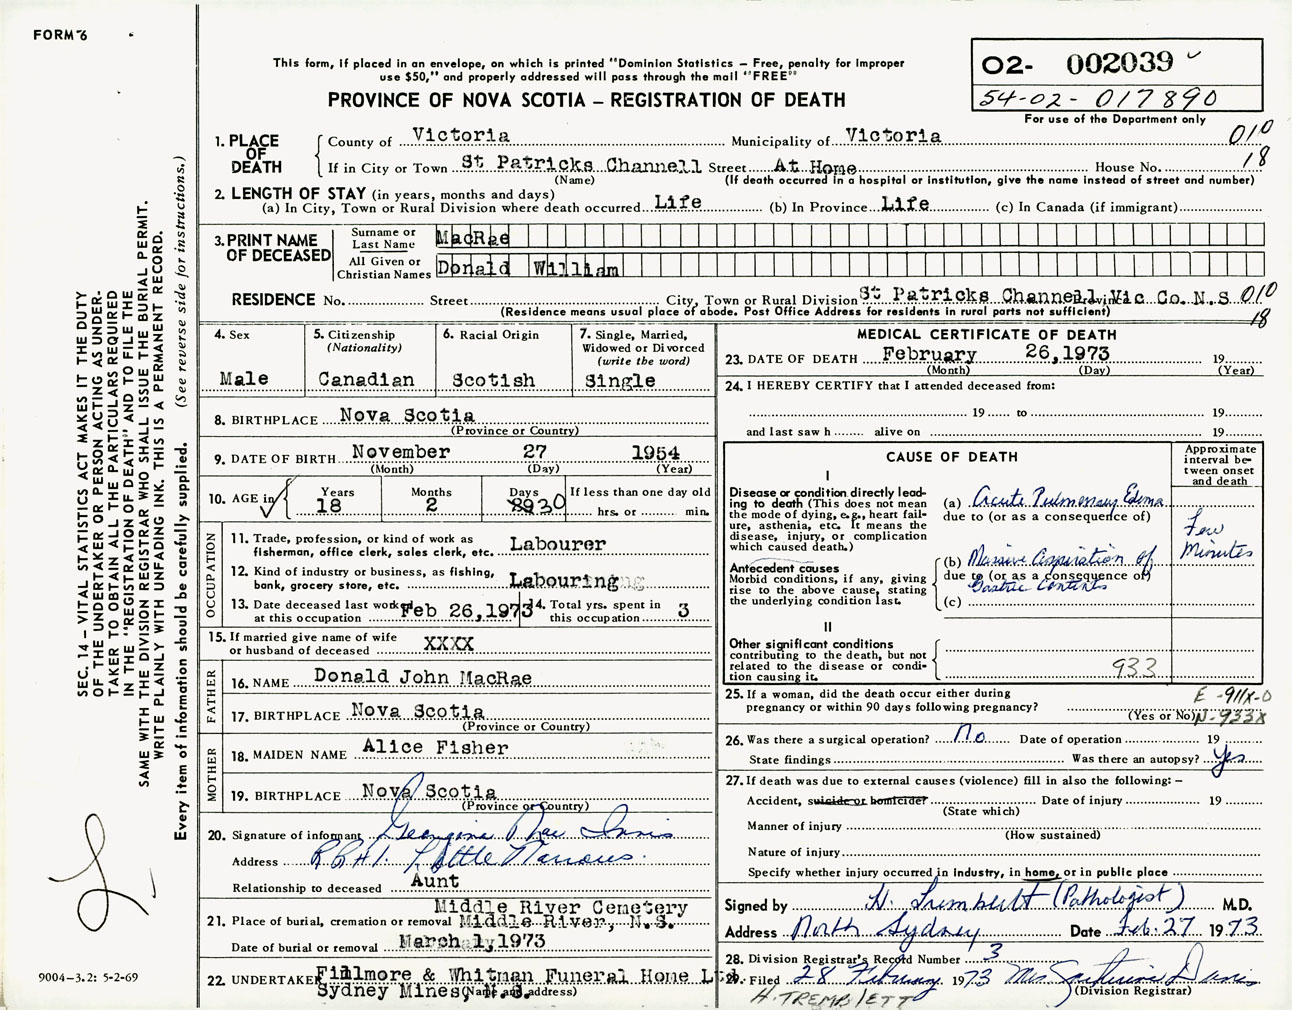 FORM 6
This form, if placed in an envelope, on which is printed "Dominion Statistics – Free, penalty for improper
use $50," and properly addressed will pass through the mail "FREE"
PROVINCE OF NOVA SCOTIA – REGISTRATION OF DEATH
02- 002039
54-02- 017890
For use of the Department only
1. PLACE OF DEATH
County of Victoria Municipality of Victoria 010
If in City or Town St Patricks Channell Street At Home House No. 18
(Name) (If death occurred in a hospital or institution, give the name instead of street and number)
2. LENGTH OF STAY (in years, months and days)
(a) In City, Town or Rural Division where death occurred Life (b) In Province Life (c) In Canada (if immigrant)
3. PRINT NAME OF DECEASED
Surname or Last Name MacRae
All Given or Christian Names Donald William
RESIDENCE No. Street City, Town or Rural Division St Patricks Channell Province Vic Co. N.S 010
(Residence means usual place of abode. Post Office Address for residents in rural parts not sufficient) 18
4. Sex
Male
5. Citizenship
(Nationality)
Canadian
6. Racial Origin
Scotish
7. Single, Married,
Widowed or Divorced
(write the word)
Single
8. BIRTHPLACE Nova Scotia
(Province or Country)
9. DATE OF BIRTH November 27 1954
(Month) (Day) (Year)
10. AGE in
Years 18
Months 2
Days 30
If less than one day old
hrs. or min.
OCCUPATION
11. Trade, profession, or kind of work as
fisherman, office clerk, sales clerk, etc. Labourer
12. Kind of industry or business, as fishing,
bank, grocery store, etc. Labouring
13. Date deceased last worked
at this occupation Feb 26,1973
14. Total yrs. spent in
this occupation 3
15. If married give name of wife
or husband of deceased XXXX
FATHER
16. NAME Donald John MacRae
17. BIRTHPLACE Nova Scotia
(Province or Country)
MOTHER
18. MAIDEN NAME Alice Fisher
19. BIRTHPLACE Nova Scotia
(Province or Country)
20. Signature of informant Georgina Mac Innis
Address R.R#1. Little Narrows.
Relationship to deceased Aunt
Middle River Cemetery
21. Place of burial, cremation or removal Middle River, N.S.
Date of burial or removal March 1,1973
22. UNDERTAKER Fillmore & Whitman Funeral Home Ltd.
Sydney Mines, N.S.
(Name and address)
MEDICAL CERTIFICATE OF DEATH
23. DATE OF DEATH February 26,1973 19
(Month) (Day) (Year)
24. I HEREBY CERTIFY that I attended deceased from:
19 to 19
and last saw h alive on 19
CAUSE OF DEATH
Approximate
interval be-
tween onset
and death
I
Disease or condition directly lead-
ing to death (This does not mean
the mode of dying, e.g., heart fail-
ure, asthenia, etc. It means the
disease, injury, or complication
which caused death.)
(a) Acute Pulmonary Edema
due to (or as a consequence of)
Few
Minutes
Antecedent causes
Morbid conditions, if any, giving
rise to the above cause, stating
the underlying condition last.
(b) Massive Aspiration of
due to (or as a consequence of)
Gastric Contents
(c)
II
Other significant conditions
contributing to the death, but not
related to the disease or condi-
tion causing it.
933
25. If a woman, did the death occur either during
pregnancy or within 90 days following pregnancy?
(Yes or No)
E -911X-0
N-933X
26. Was there a surgical operation? No Date of operation 19
State findings Was there an autopsy? Yes
27. If death was due to external causes (violence) fill in also the following: –
Accident, suicide or homicide? Date of injury 19
(State which)
Manner of injury
(How sustained)
Nature of injury
Specify whether injury occurred in industry, in home, or in public place
Signed by H. Tremblett (Pathologist) M.D.
Address North Sydney Date Feb. 27 1973.
28. Division Registrar's Record Number 3
29. Filed 28 February 1973 Mrs Davis
H. TREMBLETT (Division Registrar)
SEC. 14 – VITAL STATISTICS ACT MAKES IT THE DUTY
OF THE UNDERTAKER OR PERSON ACTING AS UNDER-
TAKER TO OBTAIN ALL THE PARTICULARS REQUIRED
IN THE "REGISTRATION OF DEATH" AND TO FILE THE
SAME WITH THE DIVISION REGISTRAR WHO SHALL ISSUE THE BURIAL PERMIT.
WRITE PLAINLY WITH UNFADING INK. THIS IS A PERMANENT RECORD.
Every item of information should be carefully supplied. (See reverse side for instructions.)
9004-3.2: 5-2-69